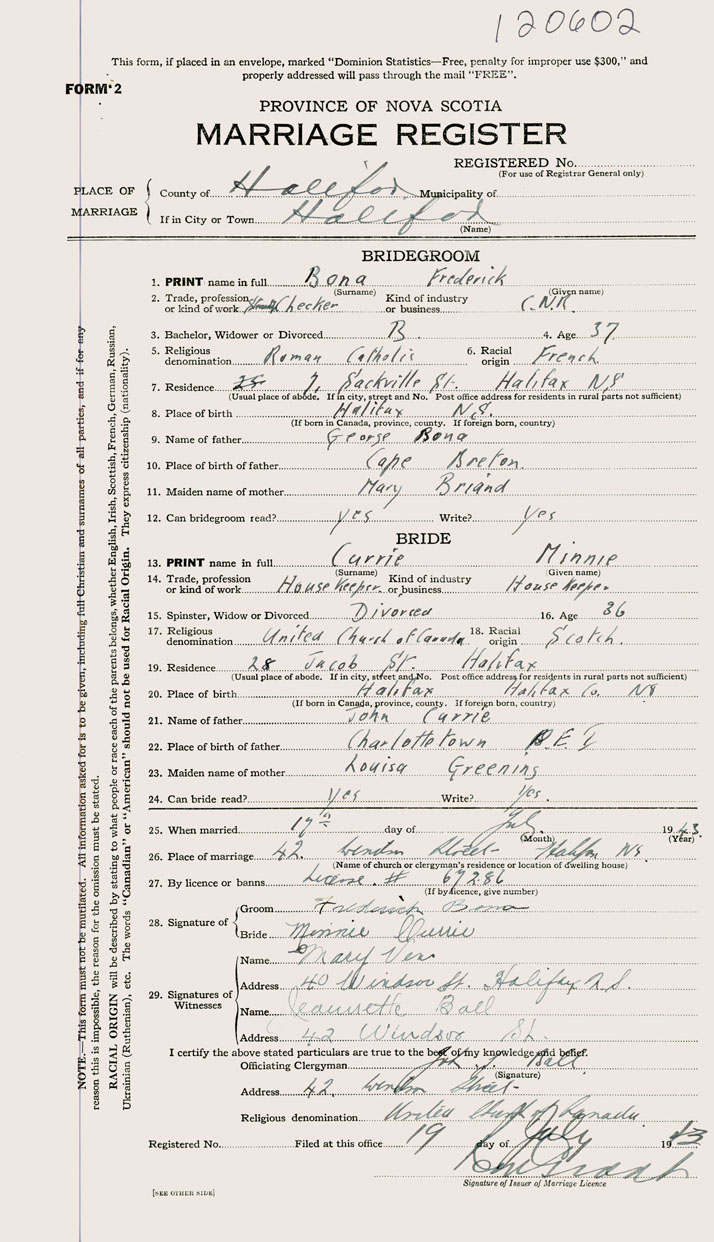 120602
This form, if placed in an envelope, marked "Dominion Statistics—Free, penalty for improper use $300," and
properly addressed will pass through the mail "FREE".
FORM 2
PROVINCE OF NOVA SCOTIA
MARRIAGE REGISTER
REGISTERED No.
(For use of Registrar General only)
PLACE OF MARRIAGE
County of Halifax Municipality of
If in City or Town Halifax
(Name)
BRIDEGROOM
1. PRINT name in full Bona Frederick
(Surname) (Given name)
2. Trade, profession or kind of work Checker Kind of industry or business C.N.R.
3. Bachelor, Widower or Divorced B 4. Age 37
5. Religious denomination Roman Catholic 6. Racial origin French
7. Residence 7, Sackville St. Halifax N.S
(Usual place of abode. If in city, street and No. Post office address for residents in rural parts not sufficient)
8. Place of birth Halifax N.S.
(If born in Canada, province, county. If foreign born, country)
9. Name of father George Bona
10. Place of birth of father Cape Breton
11. Maiden name of mother Mary Briand
12. Can bridegroom read? yes Write? yes
BRIDE
13. PRINT name in full Currie Minnie
(Surname) (Given name)
14. Trade, profession or kind of work House Keeper Kind of industry or business House Keeper
15. Spinster, Widow or Divorced Divorced 16. Age 36
17. Religious denomination United Church of Canada 18. Racial origin Scotch.
19. Residence 28 Jacob St. Halifax
(Usual place of abode. If in city, street and No. Post office address for residents in rural parts not sufficient)
20. Place of birth Halifax Halifax Co. NS
(If born in Canada, province, county. If foreign born, country)
21. Name of father John Currie
22. Place of birth of father Charlottetown P.E.I
23. Maiden name of mother Louisa Greening
24. Can bride read? yes Write? yes.
25. When married 17th day of July 1943
(Month) (Year)
26. Place of marriage 42. Windsor Street Halifax NS
(Name of church or clergyman's residence or location of dwelling house)
27. By licence or banns License. # 67286
(If by licence, give number)
28. Signature of
Groom Frederick Bona
Bride Minnie Currie
29. Signatures of Witnesses
Name Mary
Address 40 Windsor St. Halifax N.S.
Name Jeannette Ball
Address 42 Windsor St.
I certify the above stated particulars are true to the best of my knowledge and belief.
Officiating Clergyman J. Ball
(Signature)
Address 42, Windsor Street
Religious denomination United Church of Canada
Registered No. Filed at this office 19 day of July 1943
Signature of Issuer of Marriage Licence
[SEE OTHER SIDE]
NOTE.—This form must not be mutilated. All information asked for is to be given, including full Christian and surnames of all parties, and if for any
reason this is impossible, the reason for the omission must be stated.
RACIAL ORIGIN will be described by stating to what people or race each of the parents belongs, whether English, Irish, Scottish, French, German, Russian,
Ukrainian (Ruthenian), etc. The words "Canadian" or "American" should not be used for Racial Origin. They express citizenship (nationality).